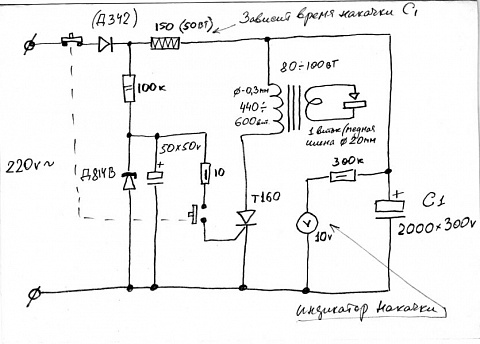 (Д342)
150 (50Вт)
Зависит время накачки C₁
80÷100ВТ
ϕ-0,3мм
440÷
600вт.
1 виток/медная
шина ϕ 20мм
100к
50x50v
220v~
Д814В
10
Т160
300к
V
10v
+
+
C1
2000x300v
индикатор накачки